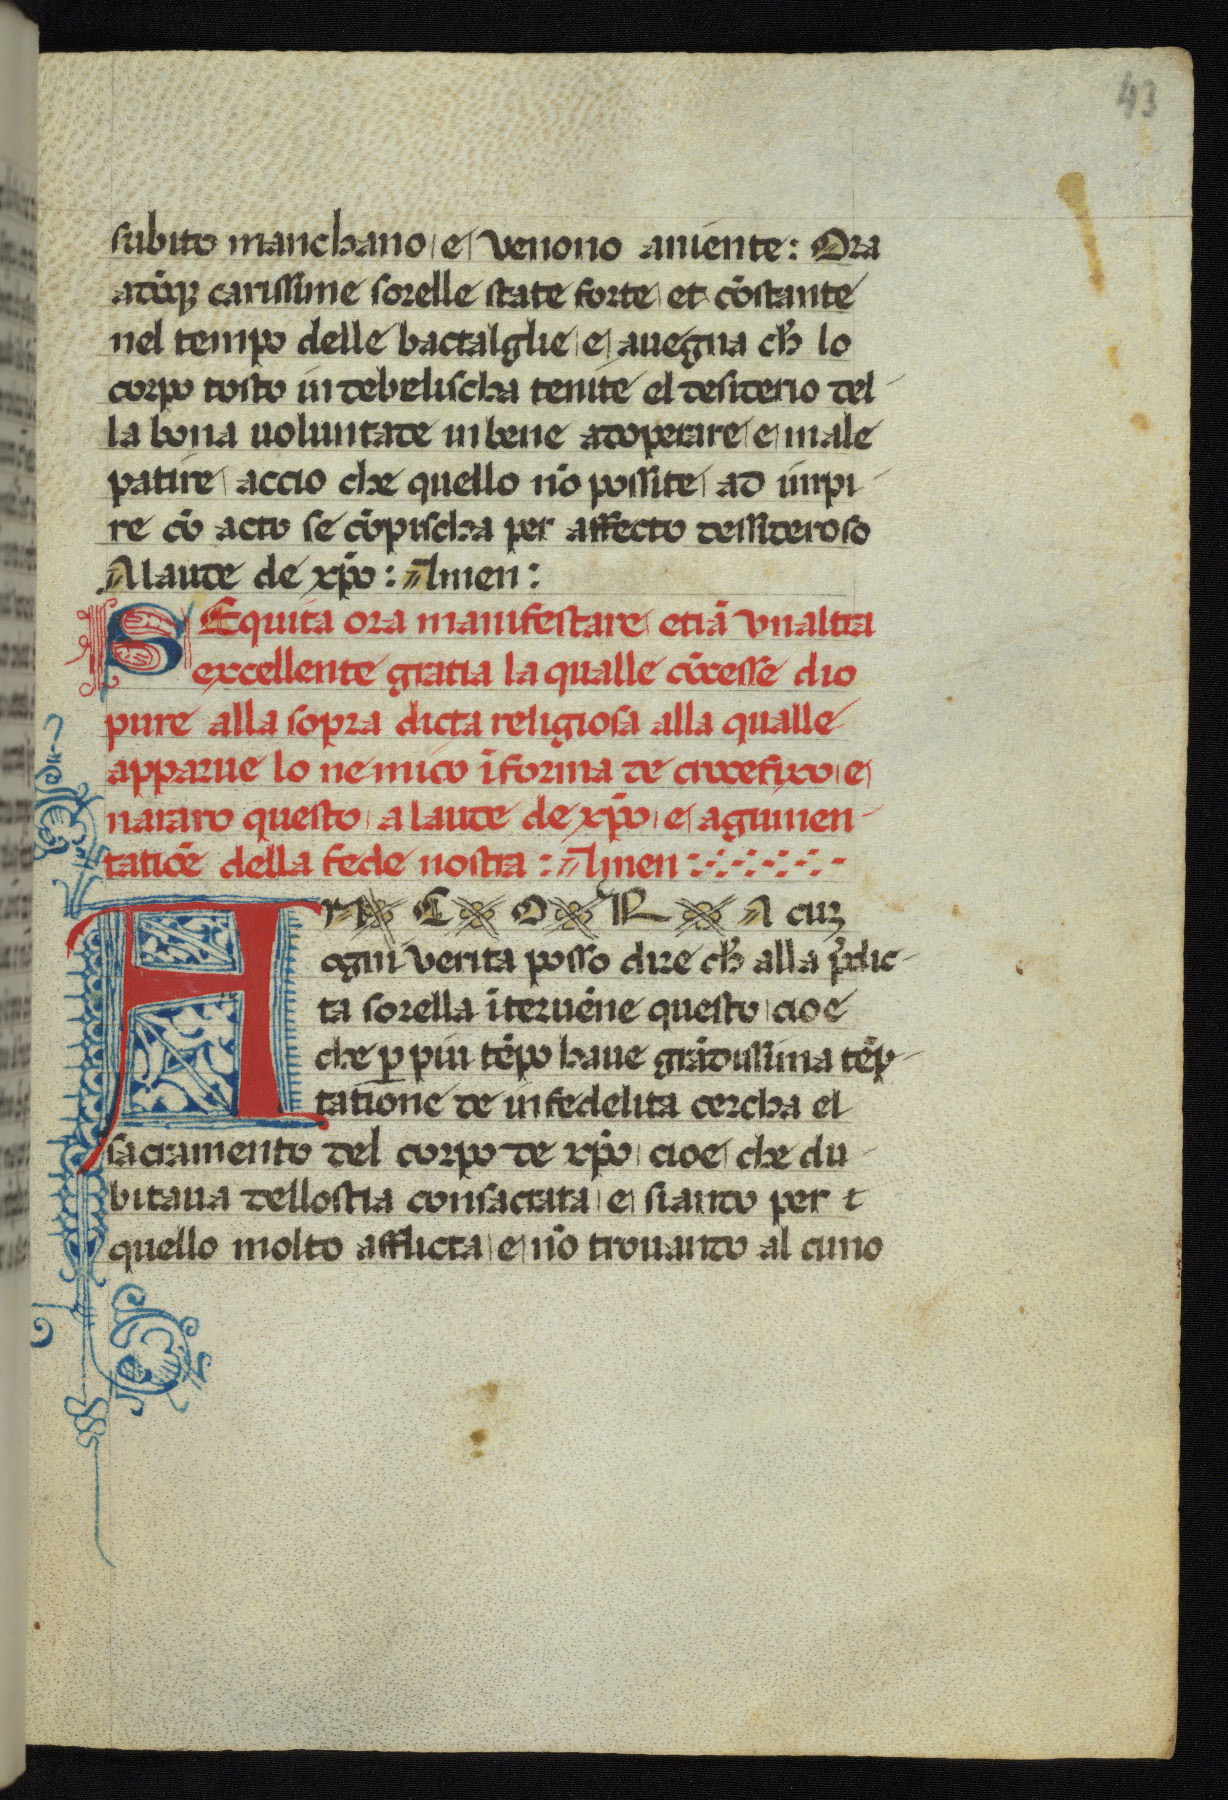 43
subito manchano e venono aniente: Ora
adõqȝ carissime sorelle state forte et cõstante
nel tempo delle bactalglie e auegna ch̃ lo
corpo tosto indebelischa tenite el desiderio del
la bona uoluntade in bene adoperare e male
patire accio che quello nõ possite ad impi
re cõ acto se cõpischa per affecto dessideroso
A laude de xp̃o: Amen:
SEquita ora manifestare etiã vnaltra
excellente gratia la qualle cõcesse dio
pure alla sopra dicta religiosa alla qualle
apparue lo nemico ĩ forma de crocefixo e
nararo questo a laude de xp̃o e agumen
tatiõe della fede nostra: Amen:
A C O R A cuȝ
ogni verita posso dire ch̃ alla p̃dic
ta sorella ĩteruẽne questo cioe
che ꝑ piu tẽpo haue grãdissima tẽp
tatione de infedelita cercha el
sacramento del corpo de xp̃o cioe che du
bitaua dellostia consacrata e siando per t
quello molto afflicta e nõ trouando al cuno